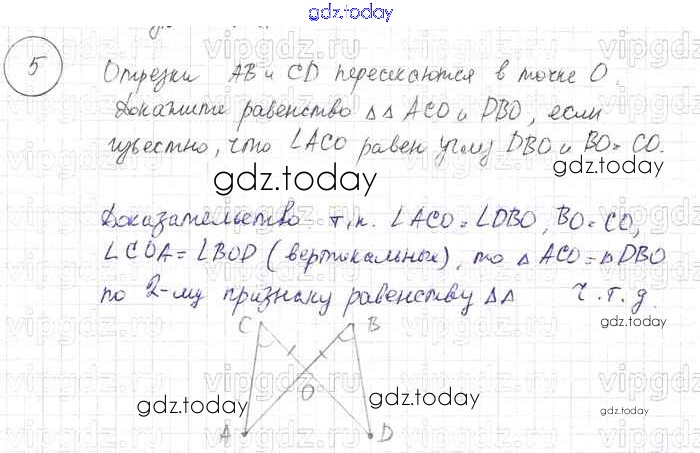 gdz.today
5
Отрезки AB и CD пересекаются в точке O.
Докажите равенство △△ ACO и DBO, если
известно, что ∠ACO равен углу DBO и BO=CO.
gdz.today
gdz.today
Доказательство т.к. ∠ACO=∠DBO, BO=CO,
∠COA=∠BOD (вертикальные), то △ ACO=△DBO
по 2-му признаку равенству △△ ч.т.д.
gdz.today
C B
O
gdz.today gdz.today
gdz.today
A D
vipgdz.ru